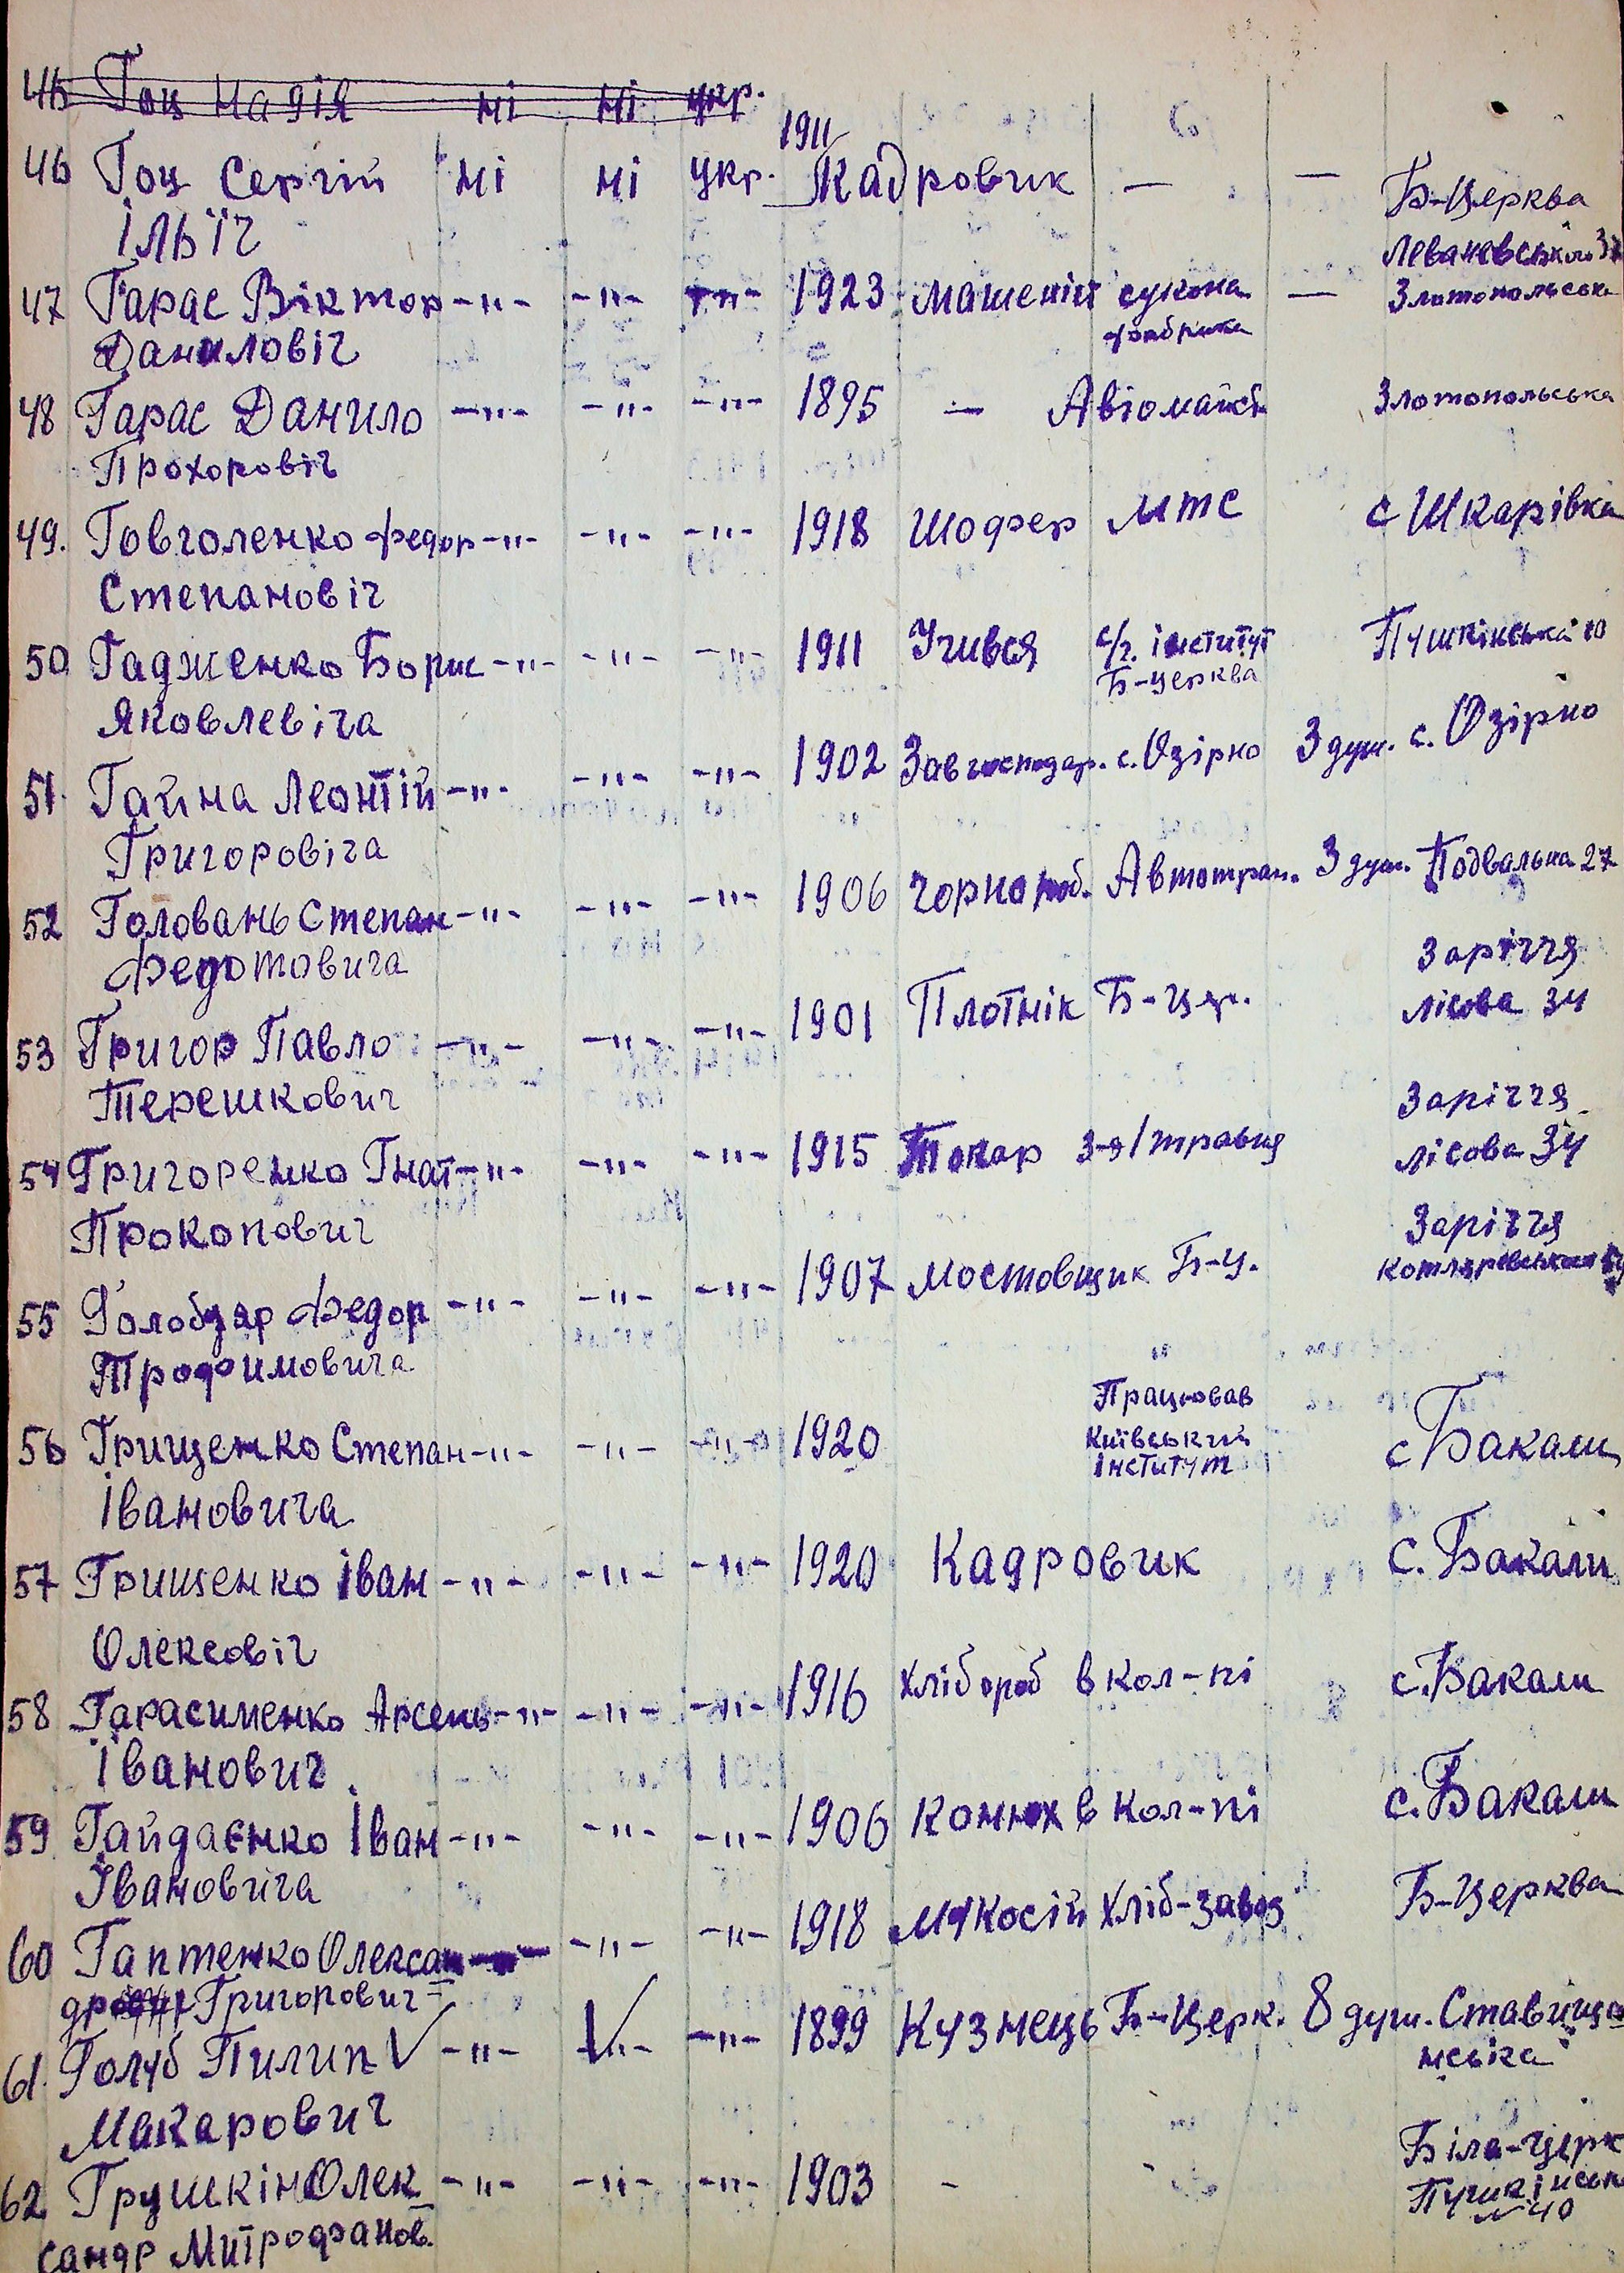 46 Гоц Надія ні ні укр.
1911
46 Гоц Сергій ні ні укр. Кадровик — — Б-Церква
Ільїч Леваневського
47 Гарас Віктор -"- -"- -"- 1923 Машеніст сукона — Златопольська
Даниловіч фабрика
48 Гарас Данило -"- -"- -"- 1895 — Авіомайст Злотопольська
Прохоровіч
49. Говголенко Федор -"- -"- -"- 1918 Шофер МТС с Шкарівка
Степановіч
50 Гадженко Борис -"- -"- -"- 1911 Учився с/г. інститут Пушкінська 10
Яковлевіча Б-Церква
51. Гайна Леонтій -"- -"- -"- 1902 Завгосподар. с. Озірно 3 душ. с. Озірно
Григоровіча
52 Головань Степан -"- -"- -"- 1906 Чорнороб. Автотран. 3 душ. Подвальна 27
Федотовича Заріччя
53 Григор Павло -"- -"- -"- 1901 Плотнік Б-Цер. лісова 34
Терешкович Заріччя
54 Григоренко Гнат -"- -"- -"- 1915 Токар 3-я/травня лісова 34
Прокопович Заріччя
55 Голобдяр Федор -"- -"- -"- 1907 Мостовщик Б-Ц. Котляревського
Трофимовича
Працював
56 Грищенко Степан -"- -"- -"- 1920 Київський с Бакали
Івановича інститут
57 Грищенко Іван -"- -"- -"- 1920 Кадровик с. Бакали
Олексовіч
58 Гарасименко Арсень -"- -"- -"- 1916 Хлібороб в кол-пі с. Бакали
Іванович
59 Гайдаєнко Іван -"- -"- -"- 1906 Конюх в Кол-пі с. Бакали
Івановича
60 Гаптенко Олексан -"- -"- 1918 Мукосій Хліб-завод Б-Церква
др Григорович
61. Голуб Пилип V -"- V -"- -"- 1899 Кузнець Б-Церк. 8 душ. Ставища
нська
Макарович
62 Грушкін Олек -"- -"- -"- 1903 - Біла-Церк
сандр Митрофанов. Пушкінськ
№ 40